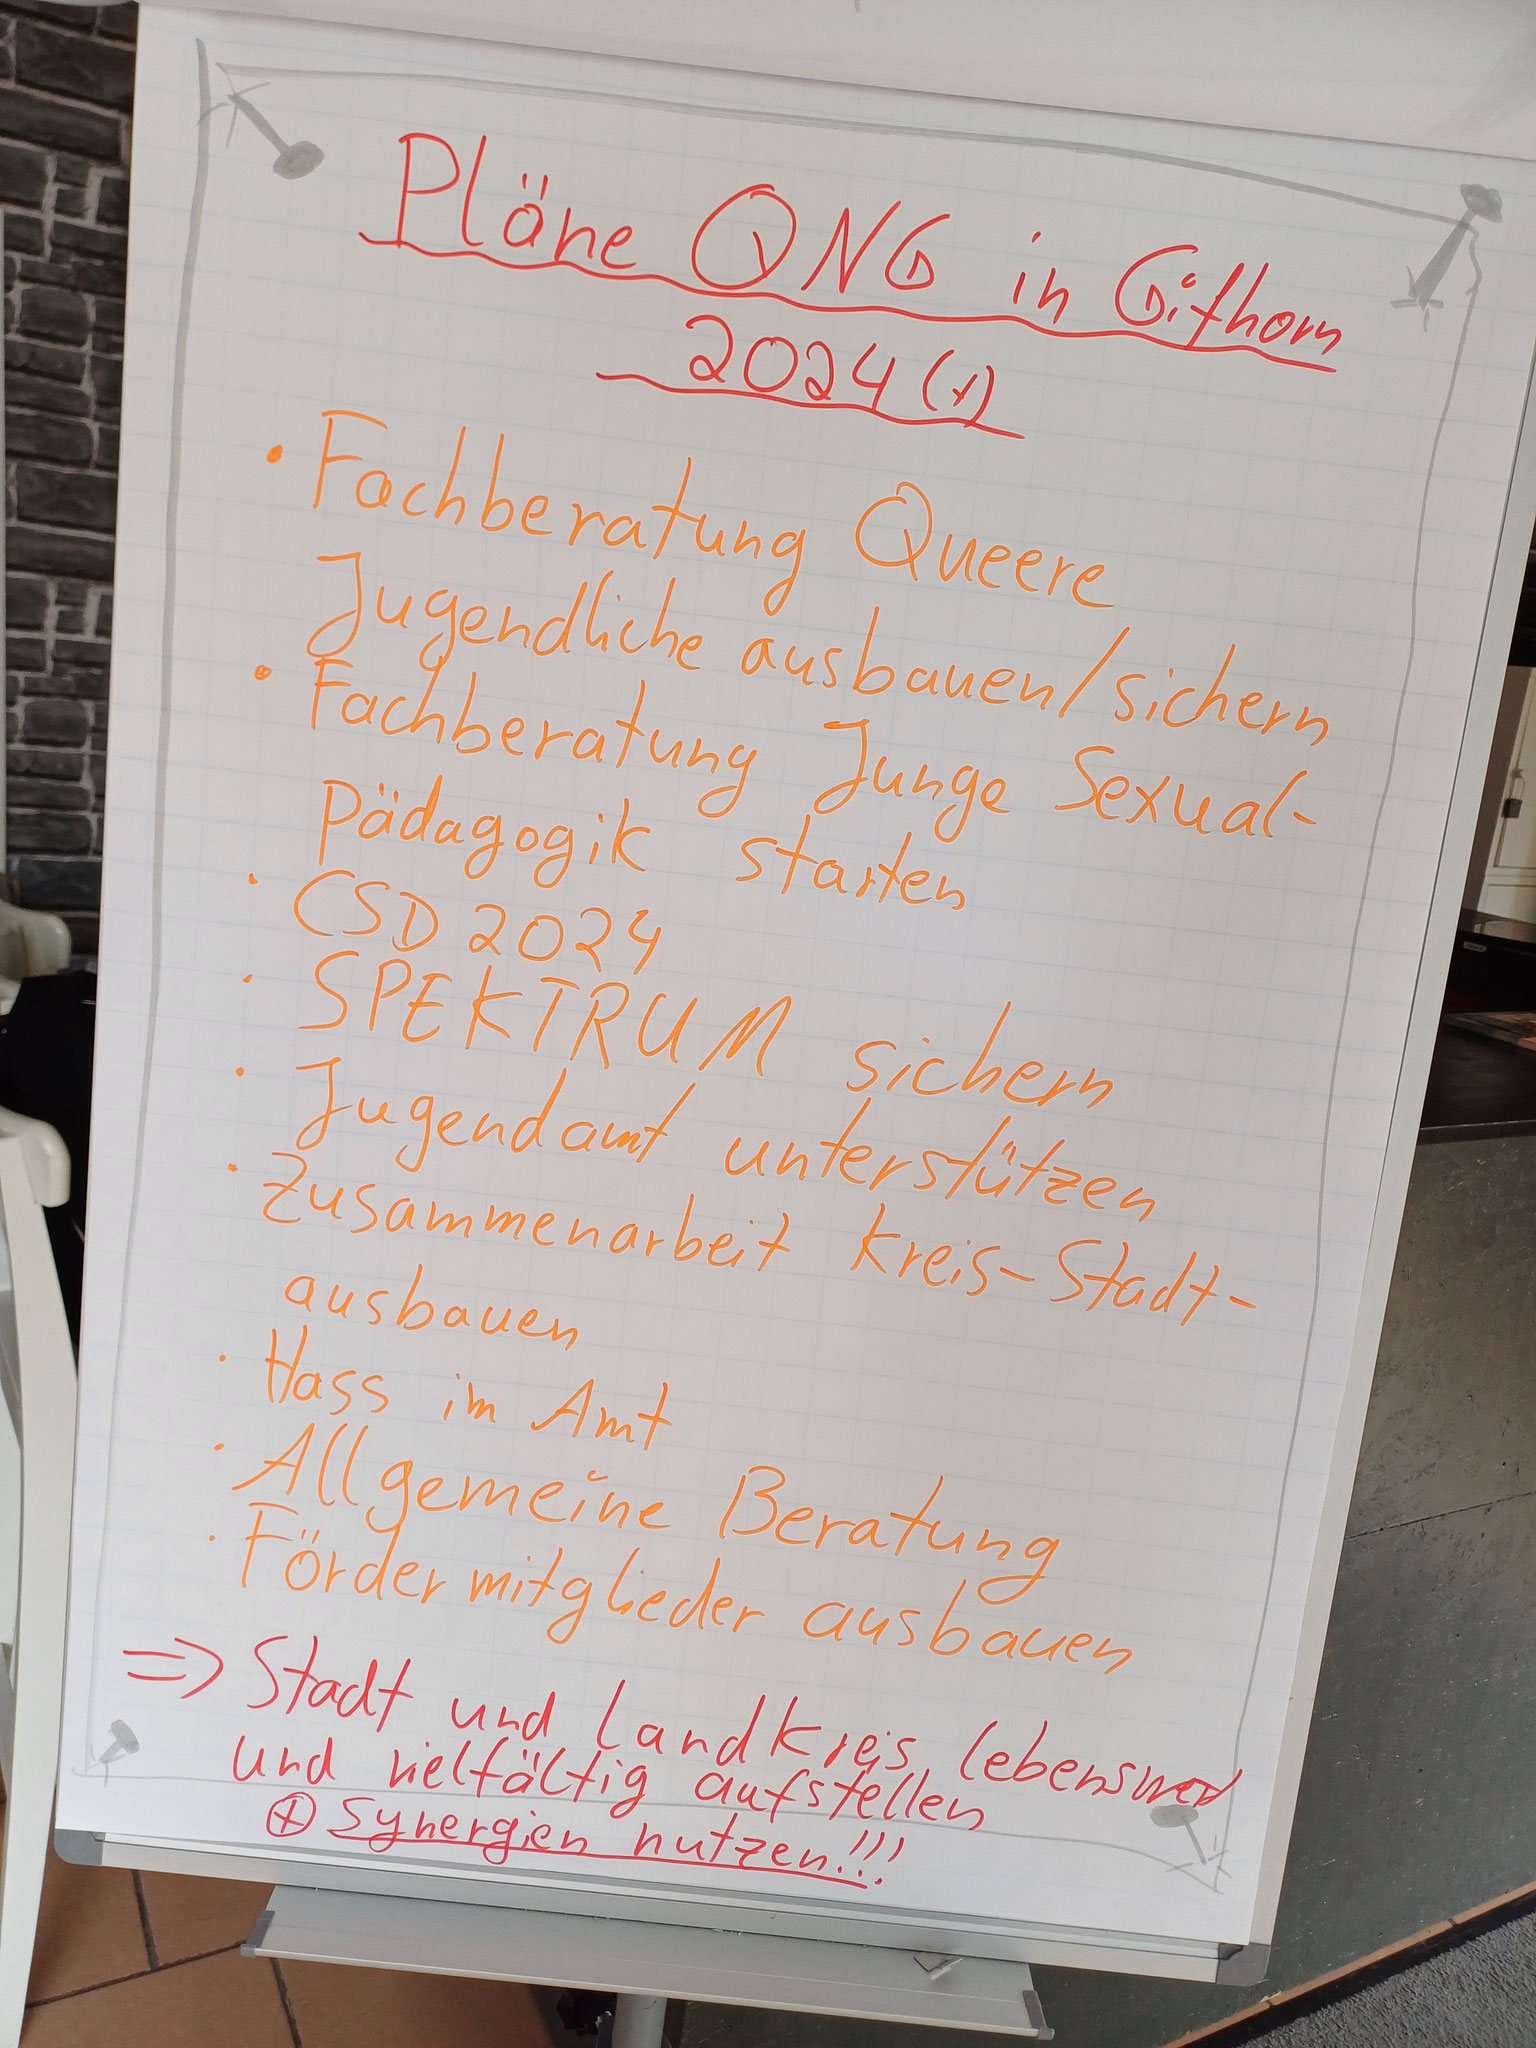 Pläne QNG in Gifhorn
2024 (+)
• Fachberatung Queere
Jugendliche ausbauen/sichern
• Fachberatung Junge Sexual-
pädagogik starten
• CSD 2024
• SPEKTRUM sichern
• Jugendamt unterstützen
• Zusammenarbeit Kreis-Stadt-
ausbauen
• Hass im Amt
• Allgemeine Beratung
• Fördermitglieder ausbauen
=> Stadt und Landkreis lebenswert
und vielfältig aufstellen
⊕ Synergien nutzen!!!